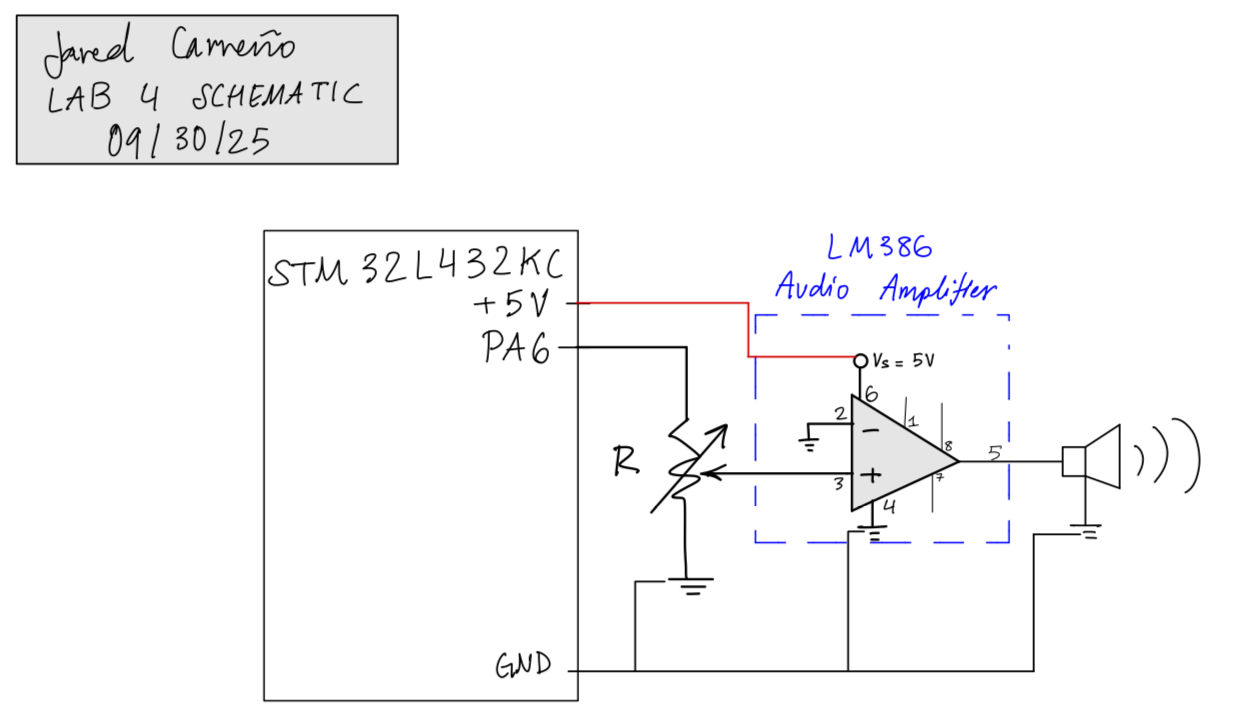 Jared Carreño
LAB 4 SCHEMATIC
09/30/25
STM32L432KC
+5V
PA6
GND
R
LM386
Audio Amplifier
Vs = 5V
6
2
1
8
-
+
3
5
7
4